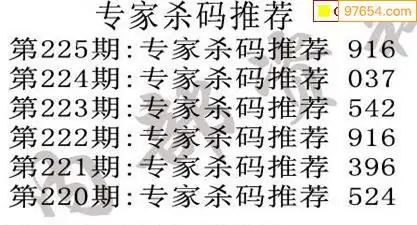 专家杀码推荐
97654.com
第225期:专家杀码推荐 916
第224期:专家杀码推荐 037
第223期:专家杀码推荐 542
第222期:专家杀码推荐 916
第221期:专家杀码推荐 396
第220期:专家杀码推荐 524